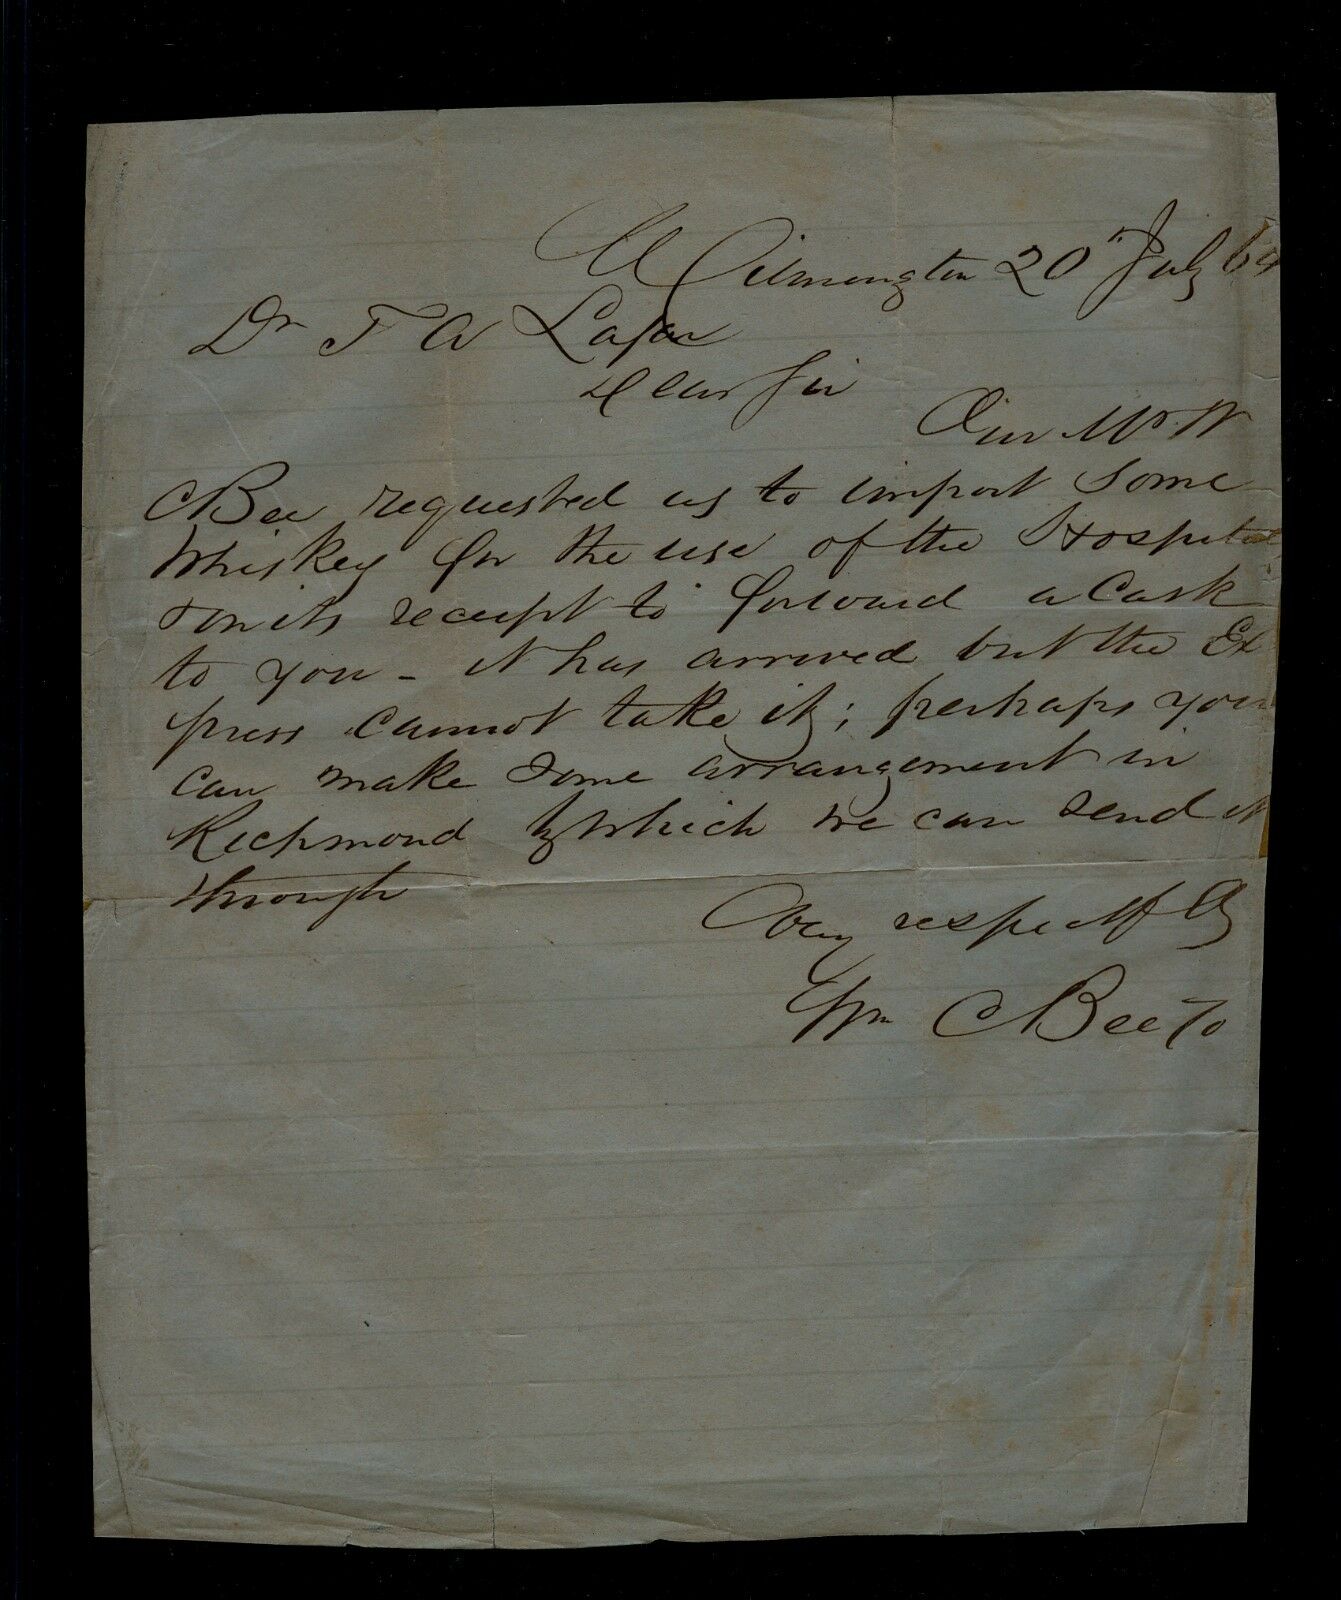 Wilmington 20 July 64
Dr T A Lafar
Dear Sir
Our Mr W
C Bee requested us to import Some
Whiskey for the use of the Hospital
& on its receipt to forward a Cask
to you - it has arrived but the Ex
press cannot take it; perhaps you
can make some arrangement in
Richmond by which we can send it
through
Very respectfly
Wm C Bee & Co